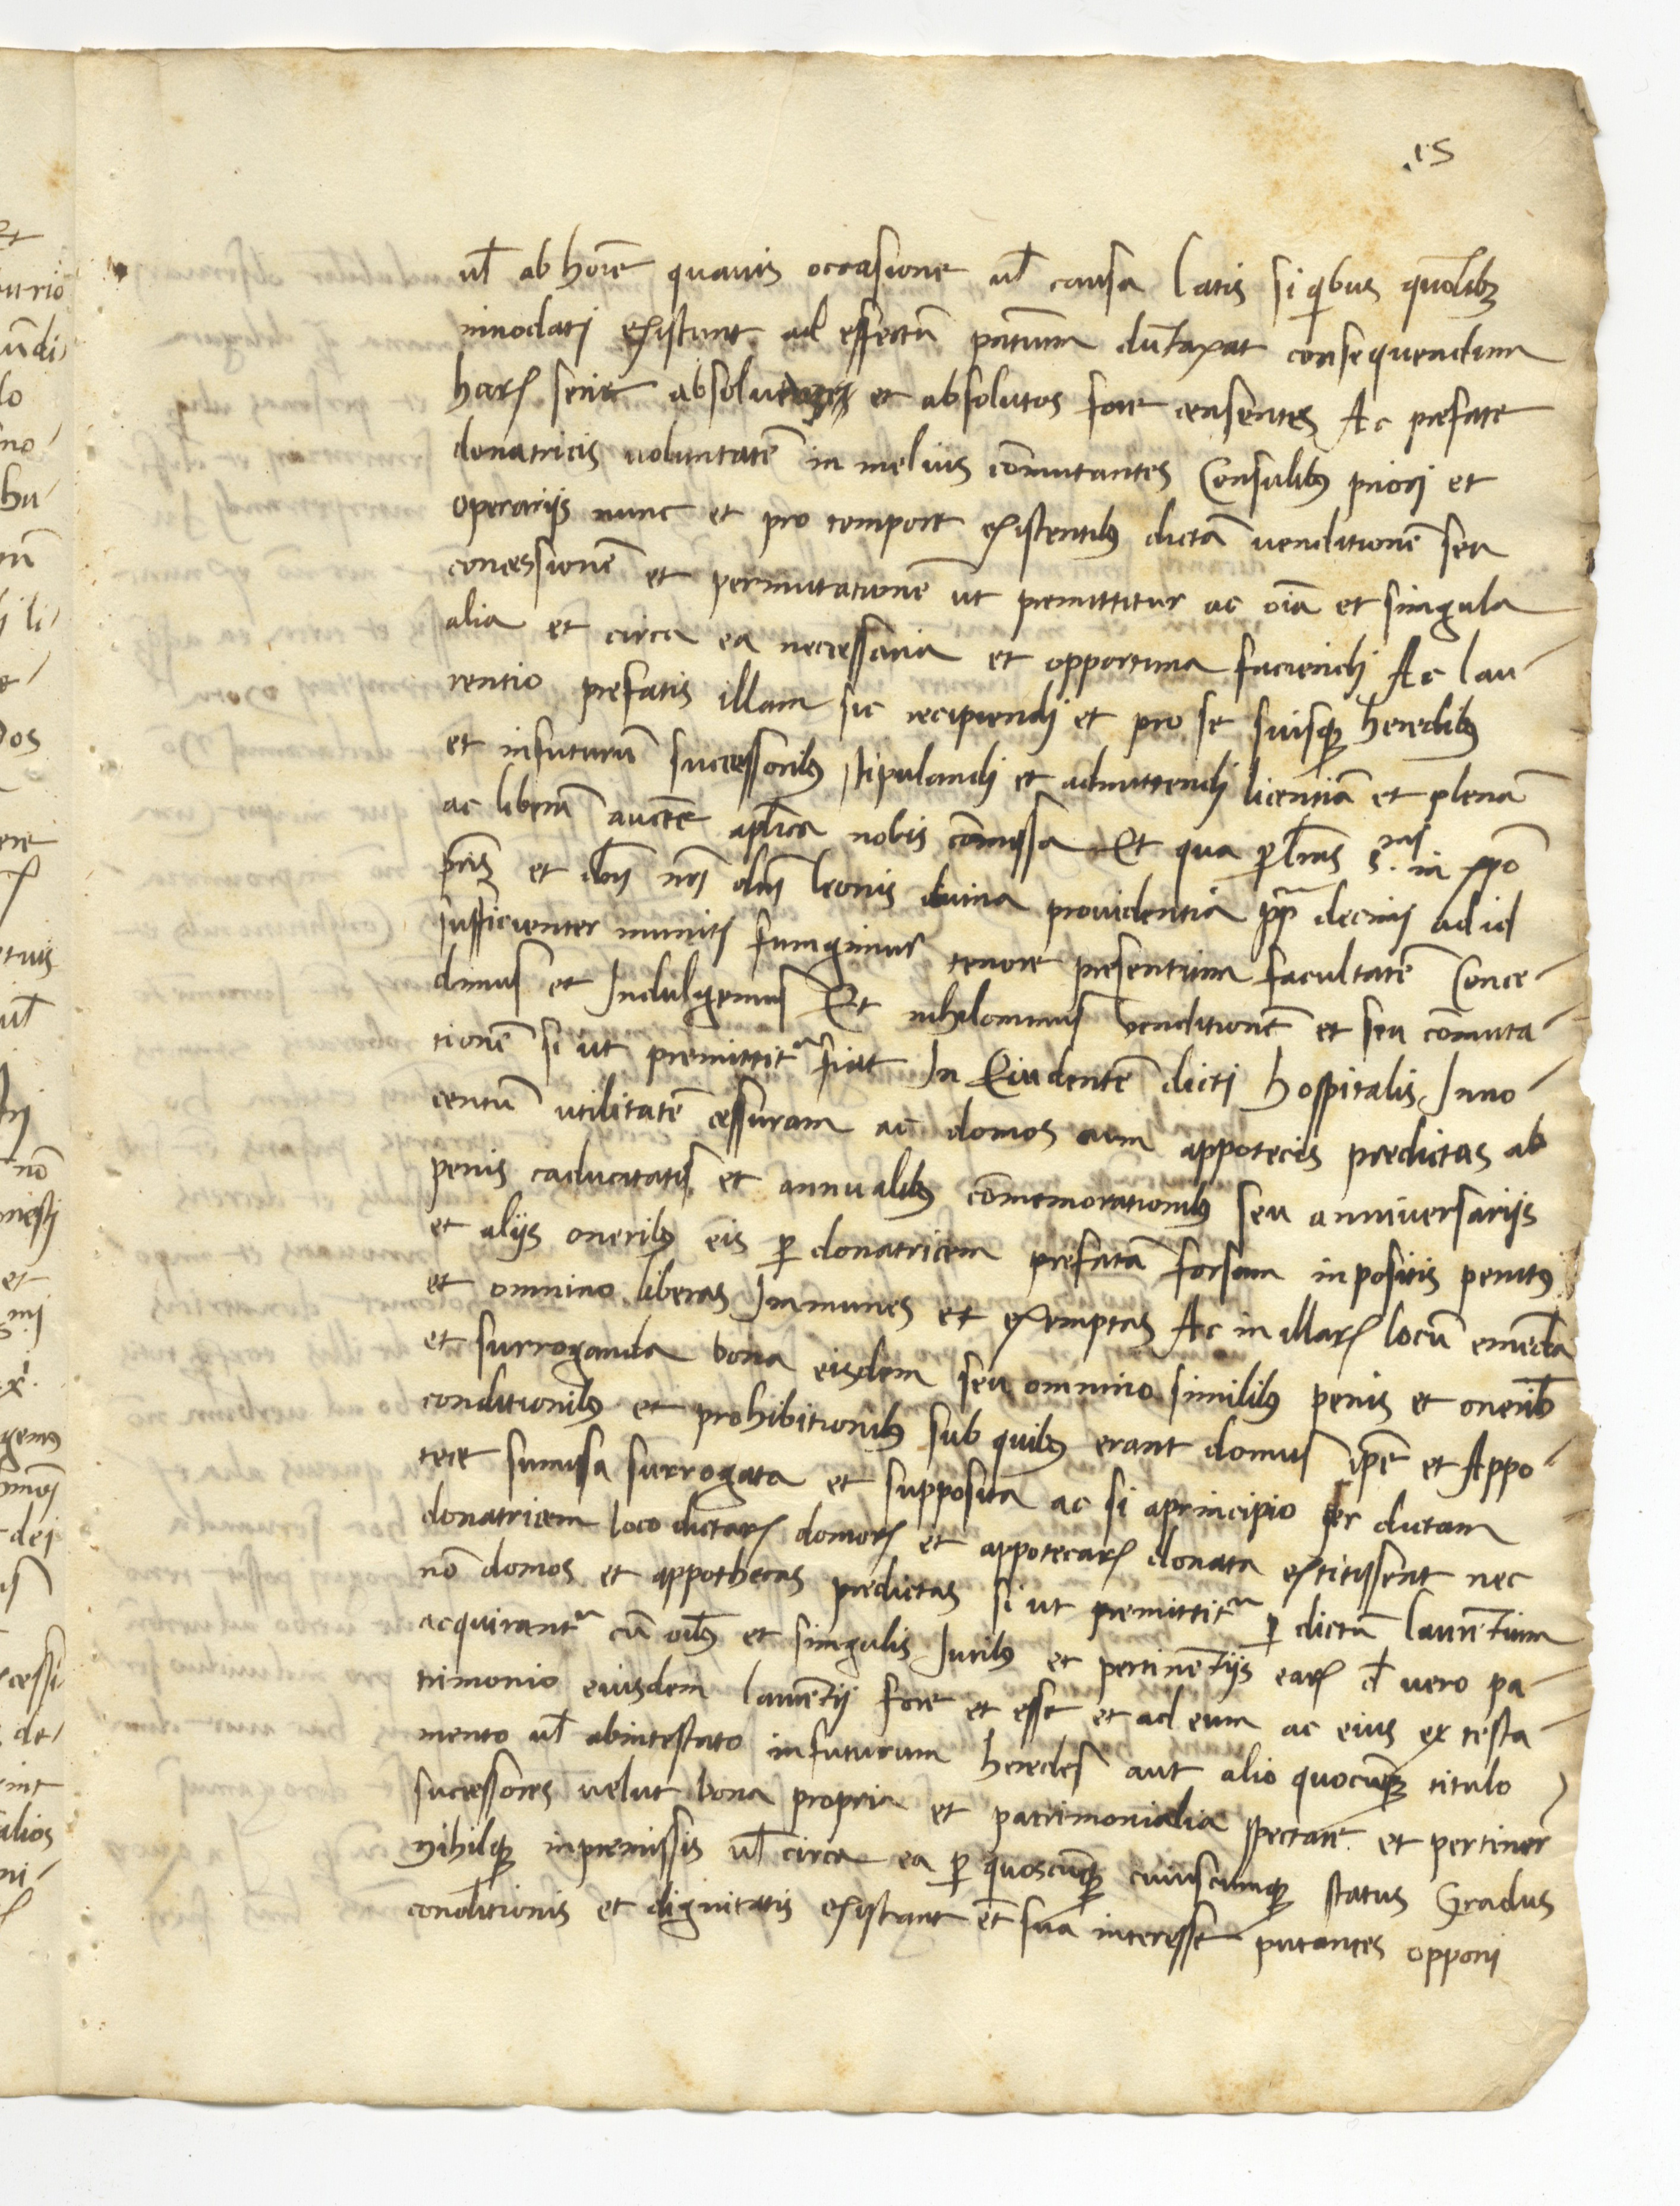 .15
ul ab hoīe quauis occasione ul causa latis si qibus quōlibz
innodati existunt ad effectū pntium dūtaxat consequendum
harꝝ serie absoluentes et absolutos fore censentes Ac prefate
donatricis uoluntatē in melius cōmutantes Consulibꝰ priori et
operarijs nunc et pro tempore existentibꝰ dictā uenditionē seu
concessionē et permutationē ut premittitur ac oīa et singula
alia et circa ea necessaria et opportuna faciendi Ac lau-
rentio prefatis illam sic recipiendi et pro se suisqꝫ heredibꝰ
et infuturū successoribꝰ stipulandi et admittendi licentiā et plenā
ac liberā auctē aplica nobis cōmissa Et qua ꝑ lras s.mi in xpo
pris et dnī nrī dnī leonis diuina prouidentia pp decimi ad id
sufficienter muniti fungimur tenore presentium facultatē Conce-
dimus et Indulgemus Et nihilominus uenditionē et seu cōmuta-
tionē si ut premittitr fiat In Euidentē dicti hospitalis Inno-
centū utilitatē cessuram ac domos cum appotecis predictas ab
penis caducitatis et annualibꝰ cōmemorationibꝰ seu anniuersarijs
et alijs oneribꝰ eis ꝑ donatricem prefatā forsam inpositis penitꝰ
et omnino liberas Inmunes et exemptas Ac in illarꝝ locū emenda
et surroganda bona eisdem seu omnino similibꝰ penis et oneribꝰ
conditionibꝰ et prohibitionibꝰ sub quibꝰ erant domus ipē et Appo-
tece sumissa surrogata et supposita ac si aprincipio per dictam
donatricem loco dictarꝝ domorꝝ et appotecarꝝ donata extitissent nec
nō domos et appothecas predictas si ut premittitr ꝑ dictū laurētium
acquirantr cū oibꝰ et singulis Juribꝰ et pertinētijs earꝝ d uero pa-
trimonio eiusdem laurētij fore et esse et ad eum ac eius ex testa-
mento ul abintestato infuturum heredes aut alio quocūqꝫ titulo
successores uelut bona propria et patrimonialia spectare et pertinere
Nihilqꝫ inpremissis ul circa ea ꝑ quoscūqꝫ cuiuscumqꝫ status Gradus
conditionis et dignitatis existant et sua interesse putantes opponi